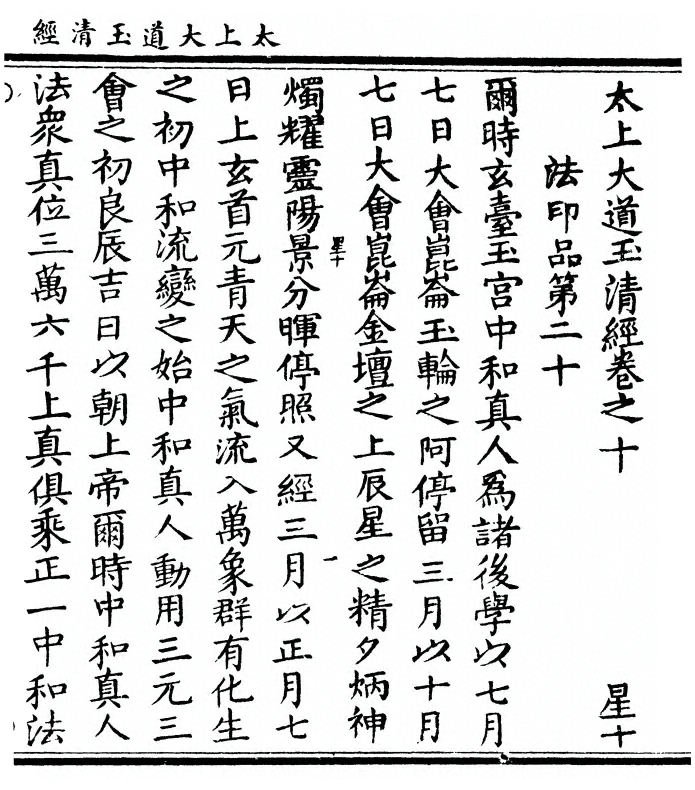 太上大道玉清經
太上大道玉清經卷之十
星十
法印品第二十
爾時玄臺玉宮中和真人爲諸後學以七月
七日大會崑崙玉輪之阿停留三月以十月
七日大會崑崙金壇之上辰星之精夕炳神
星十
一
燭耀靈陽景分暉停照又經三月以正月七
日上玄首元青天之氣流入萬象群有化生
之初中和流變之始中和真人動用三元三
會之初良辰吉日以朝上帝爾時中和真人
法眾真位三萬六千上真俱乘正一中和法